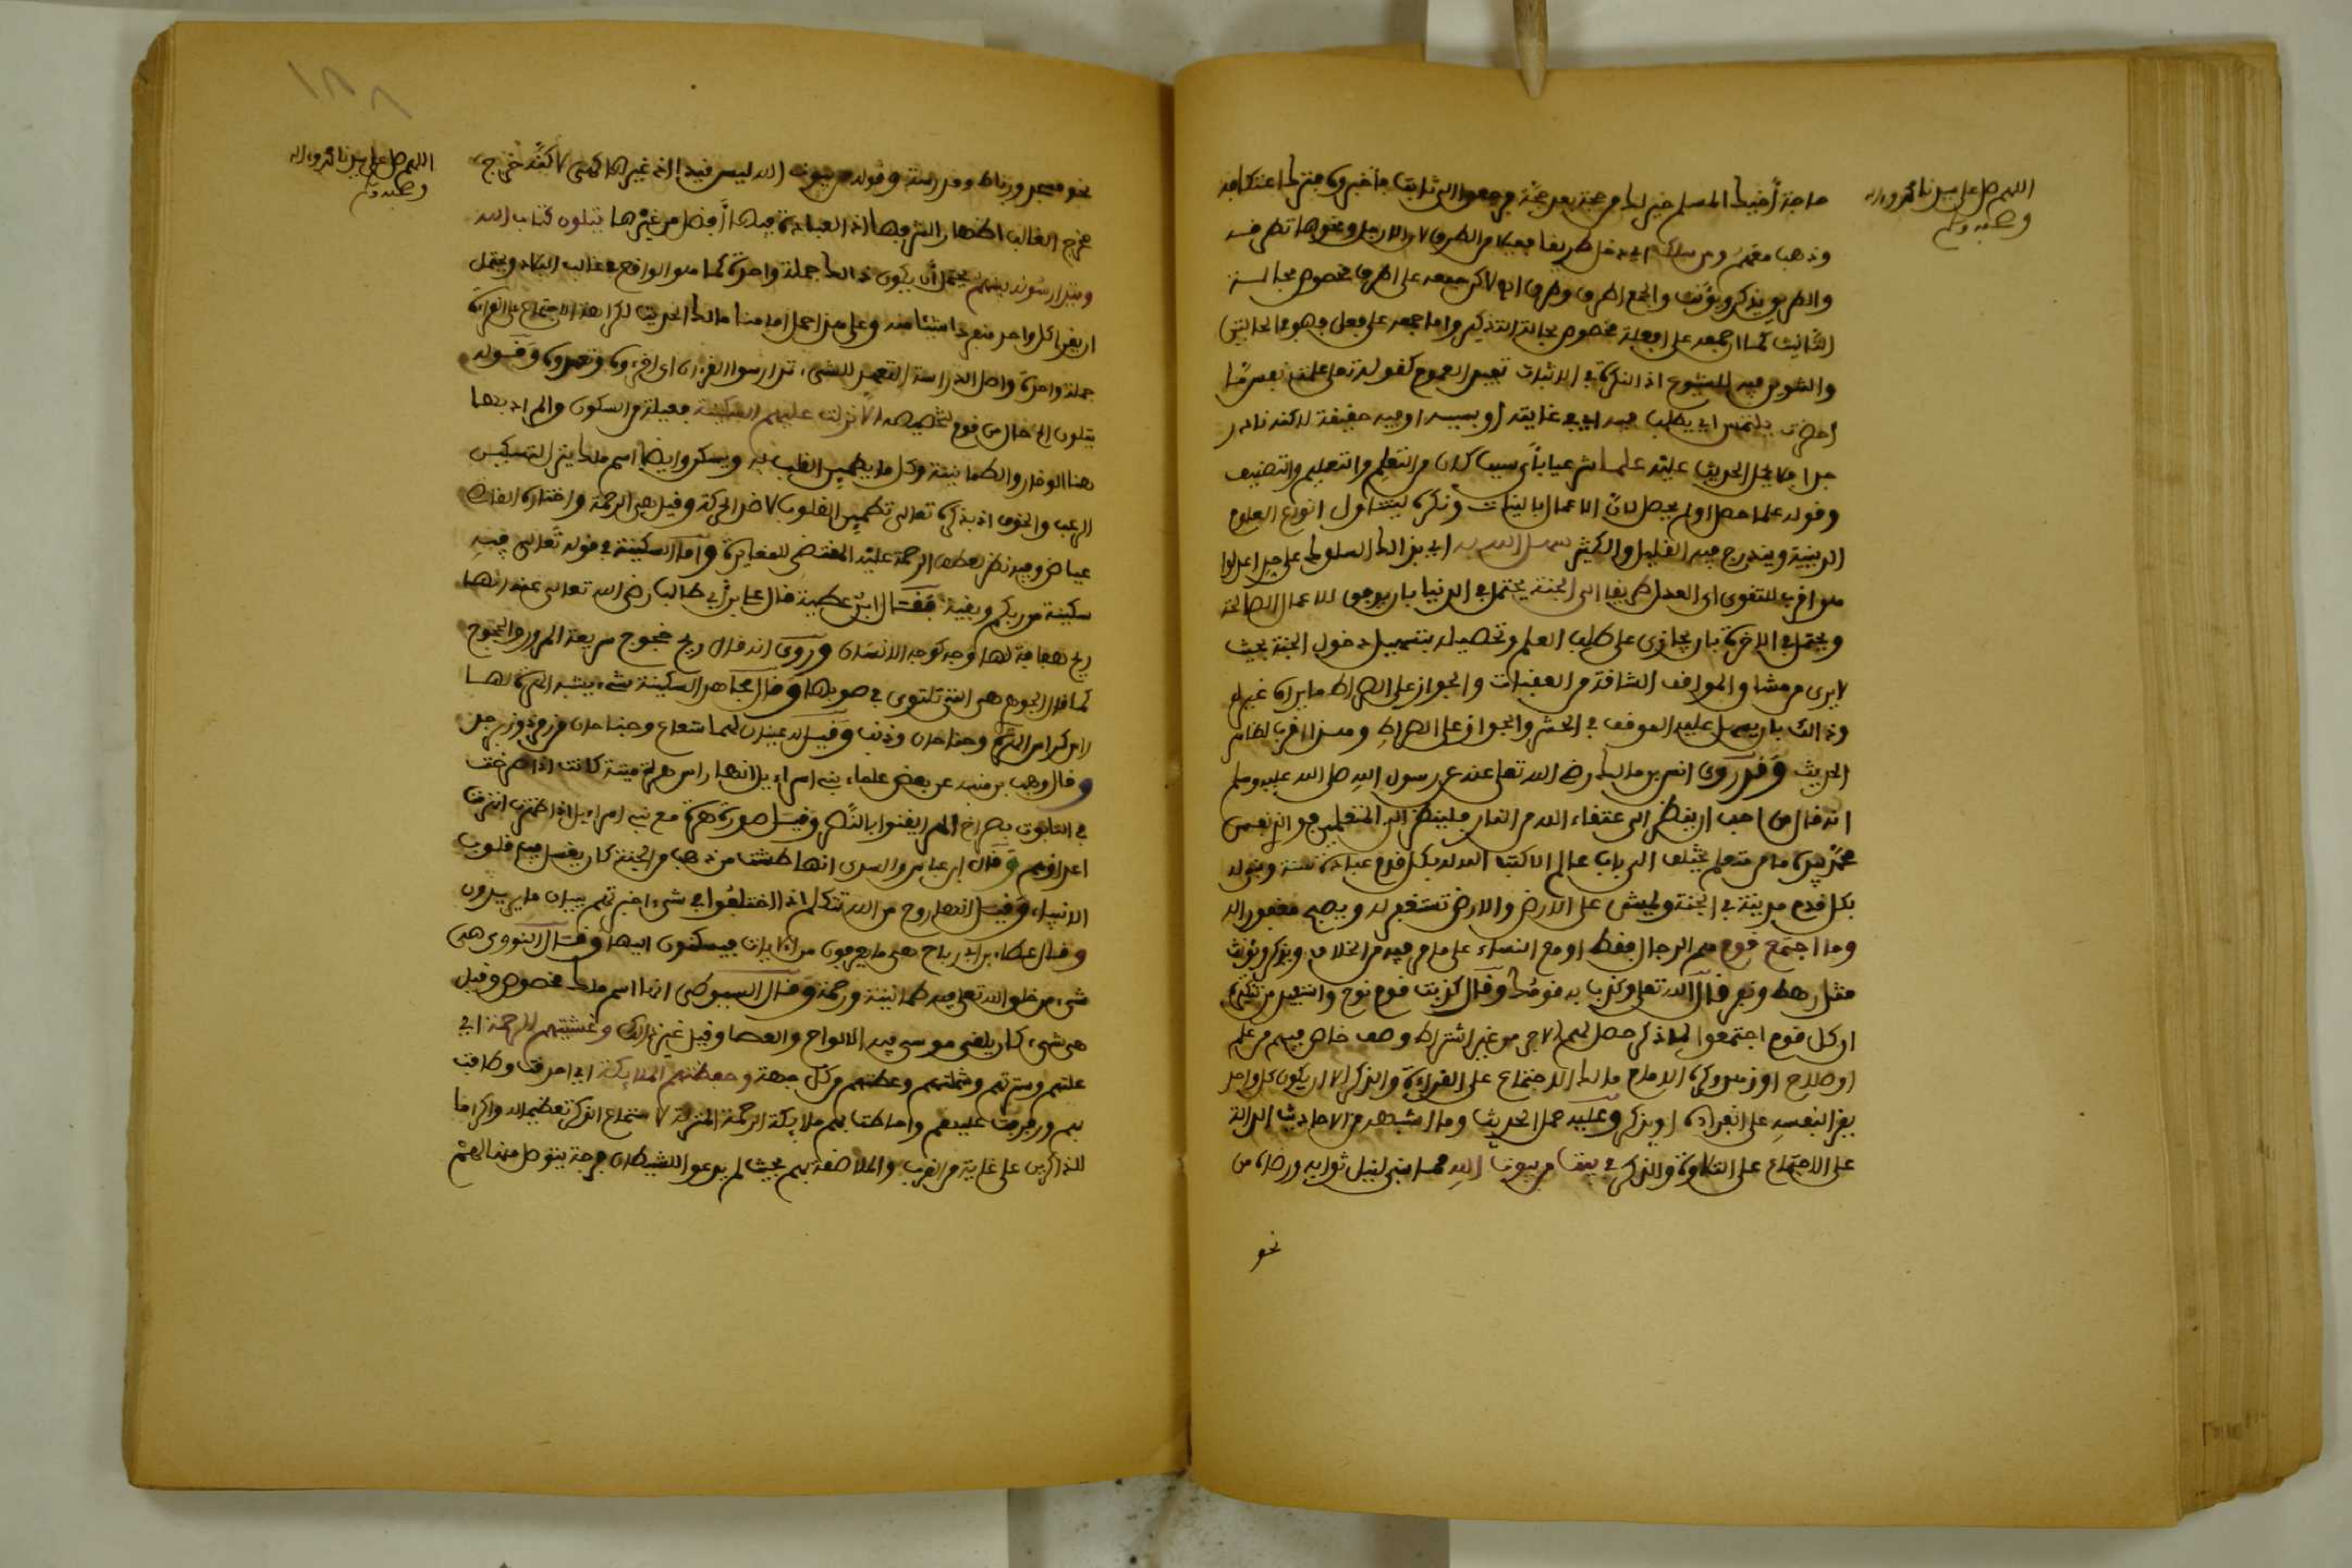 اللهم صل على سيدنا محمد وءاله
وصحبه وسلم
حاجة أخيك المسلم خير لك من حجة بعد حجة فرجعوا الى ثابت فأخبروه فترك اعتكافه
وذهب معهم ومن سلك اي دخل طريقا فعيلا من الطرق لان الارجل ونحوها تطرفه
والطريق يذكر ويؤنث والجمع اطرق وطرق اي لاكن جمعه على اطرق مخصوص بحالة
التأنيث كما ان جمعه على افعلة مخصوص بحالة التذكير واما جمعه على فعل فهو في الحالتين
والتنوين فيه للشيوع اذ النكرة في الاثبات تفيد العموم كقوله تعلى علمت نفس ما
احضرت يلتمس اي يطلب فيه اي في غايته او بسببه او فيه حقيقة لاكنه نادر
جدا فلا يحمل الحديث عليه علما شرعيا أي سببا كان من التعلم والتعليم والتصنيف
وقوله علما حصل اولم يحصل لان الاعمال بالنيات ونكره ليتناول انواع العلوم
الدينية ويندرج فيه القليل والكثير سهل الله له اي بذالك السلوك على حد اعدلوا
هو اقرب للتقوى اي العدل طريقا الى الجنة يحتمل في الدنيا بان يوفق للاعمال الصالحة
ويحتمل في الاخرة بان يجازى على طلب العلم وتحصيله بتسهيل دخول الجنة بحيث
لا يرى من مشاق المواقف الشاقة من العقبات والجواز على الصراط ما يراه غيره
وذالك بان يسهل عليه الموقف في الحشر والجواز على الصراط وهذا اقرب لظاهر
الحديث وقد روى انس بن مالك رضي الله تعلى عنه عن رسول الله صلى الله عليه وسلم
انه قال من احب ان ينظر الى عتقاء الله من النار فلينظر الى المتعلمين فوالذي نفس
محمد بيده ما من متعلم يختلف الى باب عالم الا كتب الله له بكل قدم عبادة سنة وبنى له
بكل قدم مدينة في الجنة ويمشي على الارض والارض تستغفر له ويصبح مغفورا له
وما اجتمع قوم هم الرجال فقط او مع النساء على ما مر فيه من الخلاف ويذكر ويؤنث
مثل رهط ونفر قال الله تعلى وكذب به قومك وقال كذبت قوم نوح
اي كل قوم اجتمعوا لما ذكر حصل لهم الاجر من غير اشتراط وصف خاص فيهم من علم
او صلاح او زهد وكره الامام مالك الاجتماع على القراءة والذكر الا ان يكون كل واحد
يقرا لنفسه على انفراده او يذكر وعليه حمل الحديث وما اشبهه من الاحاديث الدالة
على الاجتماع على التلاوة والذكر في بيت من بيوت الله مما بني لنيل ثوابه ورضاه من
نحو
اللهم صل على سيدنا محمد وءاله
وصحبه وسلم
نحو مسجد ورباط ومدرسة وقوله من بيوت الله ليس قيدا اذ غيرها كهي لاكنه خرج
مخرج الغالب اظهارا لشرفها اذ العبادة فيها أفضل من غيرها يتلون كتاب الله
ويتدارسونه بينهم يحتمل أن يكون ذالك جملة واحدة كما هو الواقع في غالب البلاد ويحتمل
ان يقرا كل واحد منفردا شيئا منه وعلى هذا حمل امامنا مالك الحديث لكراهة الاجتماع على القراءة
جملة واحدة واصل الدراسة التعهد للشيء تدارسوا القرءان اي اقرءوه وتعهدوه وقوله
يتلون الخ حال من قوم لتخصيصه الا نزلت عليهم السكينة فعيلة من السكون والمراد بها
هنا الوقار والطمانينة وكل ما يطمئن القلب به ويسكن وايضا اسم ملك ينزل لتسكين
الرعب والخوف اذ بذكره تعالى تطمئن القلوب لا ضد الحركة وقيل هي الرحمة واختاره القاضي
عياض وفيه نظر لعطف الرحمة عليه المقتضي للمغايرة واما السكينة في قوله تعالى فيه
سكينة من ربكم وبقية فقال ابن عطية قال علي بن أبي طالب رضي الله تعالى عنه انها
ريح هفافة لها وجه كوجه الانسان وروي انه قال ريح خجوج سريعة المرور والخجوج
كما قال الجوهري التي تلتوي في هبوبها وقال مجاهد السكينة شيء يشبه الهرة لها
راس كراس الهرة وجناحان وذنب وقيل له عينان لهما شعاع وجناحان من زمرد وزبرجد
وقال وهب بن منبه عن بعض علماء بني اسراءيل انها راس هرة ميتة كانت اذا صرخت
في التابوت بصراخ الهر ايقنوا بالنصر وقيل صورة هرة مع بني اسراءيل اذا ظهرت انهزمت
اعداؤهم وقال ابن عباس والسدي انها طشت من ذهب من الجنة كان يغسل فيه قلوب
الانبياء وقيل انها روح من الله تتكلم اذا اختلفوا في شيء اخبرتهم ببيان ما يريدون
وقال عطاء بن ابي رباح هي ما يعرفون من الايات فيسكنون اليها وقال النووي هي
شيء من خلق الله تعلى فيه طمانينة ورحمة وقال السيوطي انها اسم ملك مخصوص وقيل
هي شيء كان يلقي موسى فيه الالواح والعصا وقيل غير ذالك وغشيتهم الرحمة اي
علتهم وسترتهم وشملتهم وعطتهم من كل جهة وحفظتهم الملايكة اي احدقت وطافت
بهم ورفرفت عليهم واحاطت بهم ملايكة الرحمة المنزلة لاستماع الذكر تعظيما له واكراما
للذاكرين على غاية من القرب والملاصقة بهم بحيث لم يدعوا للشيطان فرجة يتوصل منها لهم